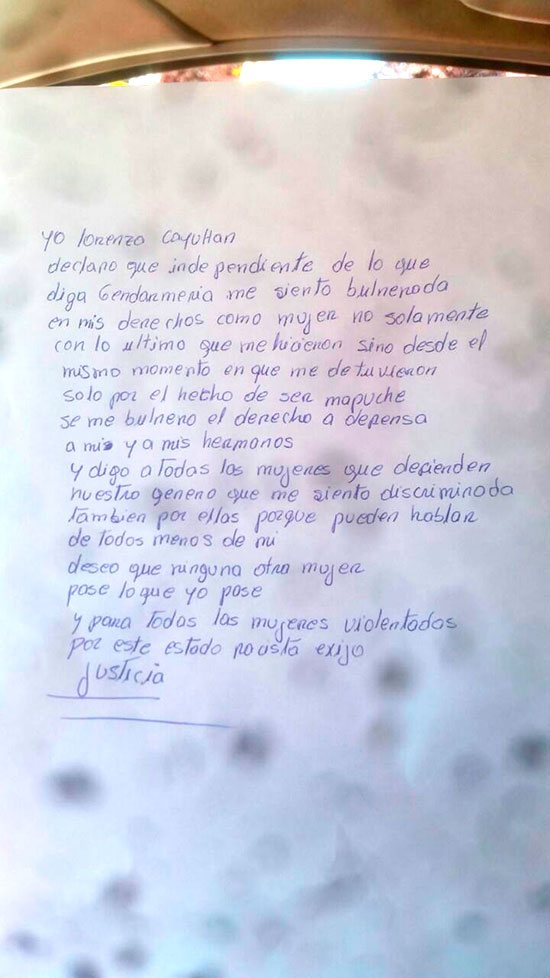 Yo lorenzo cayuHan
declaro que independiente de lo que
diga Gendarmeria me siento bulnerada
en mis derechos como mujer no solamente
con lo ultimo que me hicieron sino desde el
mismo momento en que me detuvieron
solo por el hecho de ser mapuche
se me bulnero el derecho a depensa
a mis y a mis hermanos
y digo a Todas las mujeres que defienden
nuestro genero que me siento discriminada
tambien por ellas porque pueden hablar
de todos menos de mi
deseo que ninguna otra mujer
pase lo que yo pase
y para Todas las mujeres violentadas
por este estado exijo
justicia